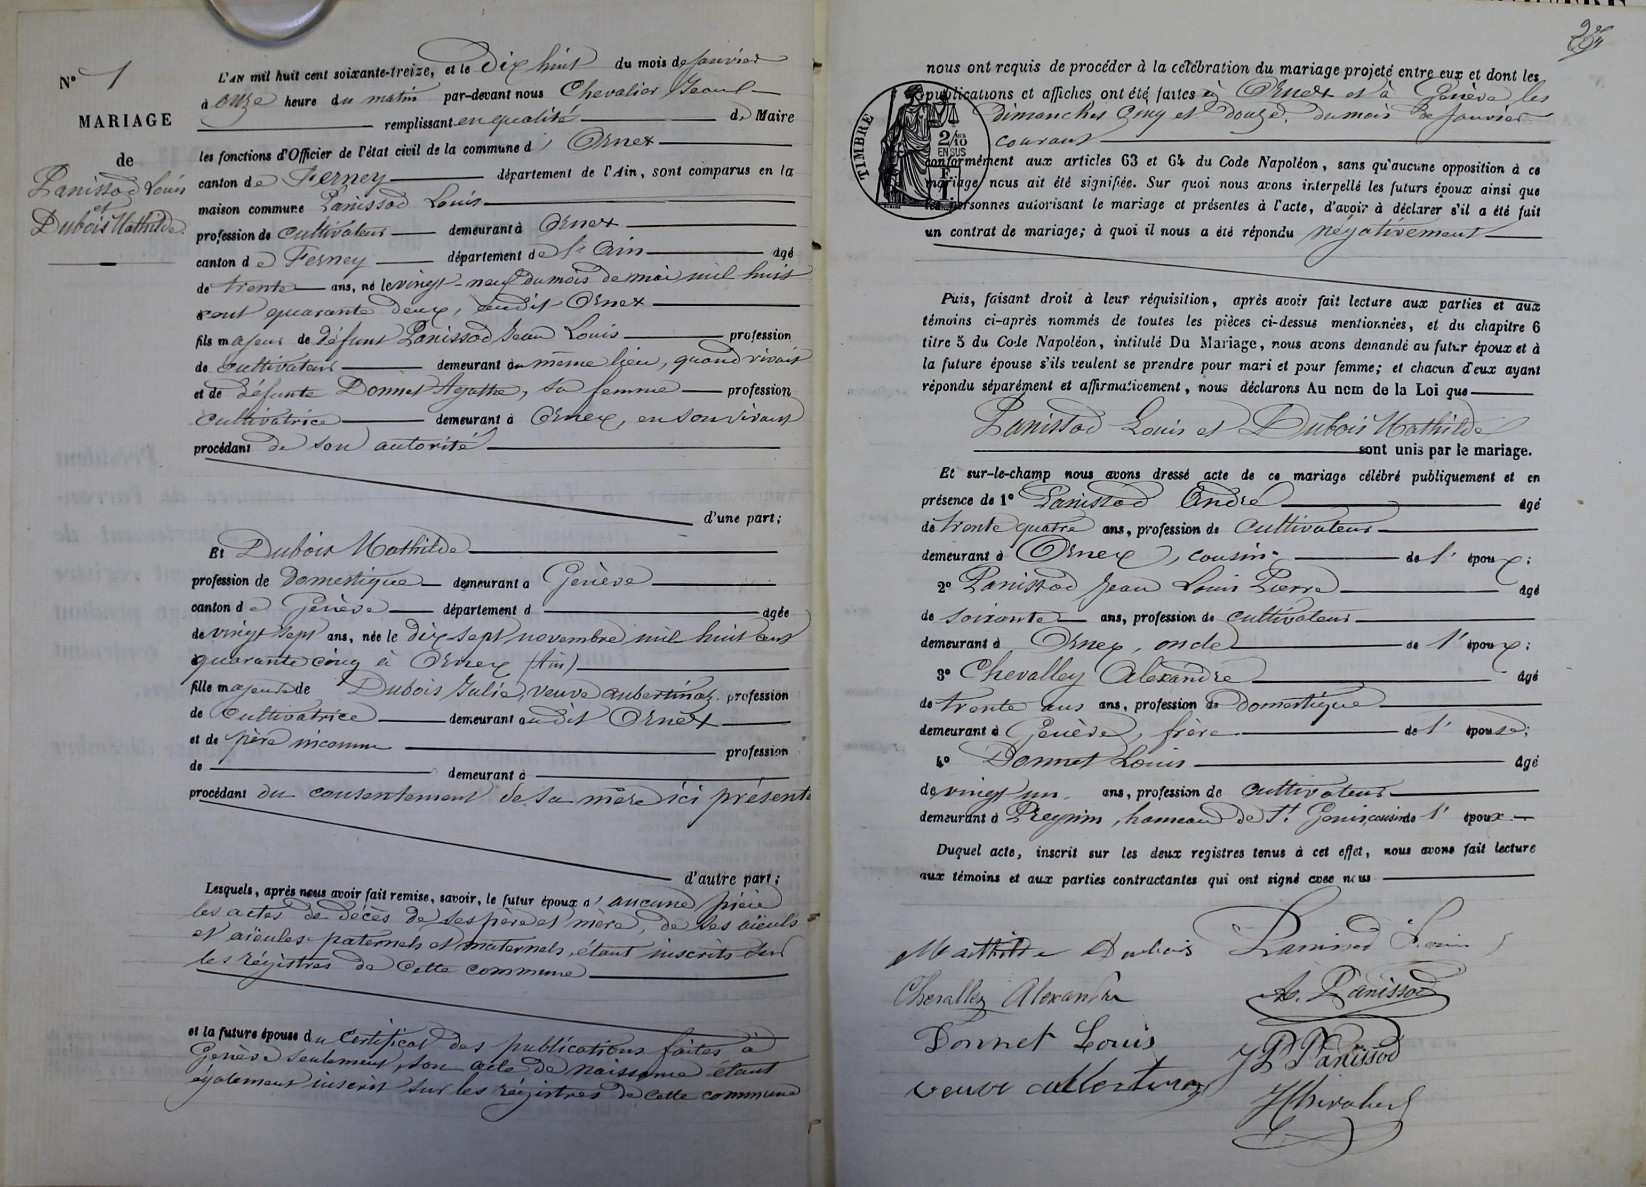 N° 1
MARIAGE
de
Panissod Louis
et
Dubois Mathilde
L'AN mil huit cent soixante-treize, et le dix huit du mois de Janvier
à onze heure du matin par-devant nous Chevalier Jean
remplissant en qualité de Maire
les fonctions d'Officier de l'état civil de la commune d' Ornex
canton de Ferney département de l'Ain, sont comparus en la
maison commune Panissod Louis
profession de cultivateur demeurant à Ornex
canton de Ferney département de l'Ain agé
de trente ans, né le vingt-neuf du mois de mai mil huit
cent quarante deux, audit Ornex
fils majeur de défunt Panissod Jean Louis profession
de cultivateur demeurant au même lieu, quand vivait
et de défunte Donnet Agathe, sa femme profession
cultivatrice demeurant à Ornex, en son vivant
procédant de son autorité
d'une part;
Et Dubois Mathilde
profession de domestique demeurant a Genève
canton de Genève département d agée
de vingt sept ans, née le dix sept novembre mil huit cent
quarante cinq à Ornex (Ain)
fille majeure de Dubois Julie, veuve aubertinaz profession
de cultivatrice demeurant audit Ornex
et de père inconnu profession
de demeurant à
procédant du consentement de sa mère ici présente
d'autre part;
Lesquels, après nous avoir fait remise, savoir, le futur époux d' aucune pièce
les actes de décès de ses père et mère, de ses aïeuls
et aïeules paternels et maternels, étant inscrits sur
les régistres de cette commune
et la future épouse du certificat des publications faites à
Genève seulement, son acte de naissance étant
également inscrit sur les régistres de cette commune
nous ont requis de procéder à la célébration du mariage projeté entre eux et dont les
publications et affiches ont été faites à Ornex et à Genève les
dimanches cinq et douze du mois de Janvier
courant
TIMBRE
2/10
EN SUS
F.
1.
conformément aux articles 63 et 64 du Code Napoléon, sans qu'aucune opposition à ce
mariage nous ait été signifiée. Sur quoi nous avons interpellé les futurs époux ainsi que
les personnes autorisant le mariage et présentes à l'acte, d'avoir à déclarer s'il a été fait
un contrat de mariage; à quoi il nous a été répondu négativement
Puis, faisant droit à leur réquisition, après avoir fait lecture aux parties et aux
témoins ci-après nommés de toutes les pièces ci-dessus mentionnées, et du chapitre 6
titre 5 du Code Napoléon, intitulé Du Mariage, nous avons demandé au futur époux et à
la future épouse s'ils veulent se prendre pour mari et pour femme; et chacun d'eux ayant
répondu séparément et affirmativement, nous déclarons Au nom de la Loi que
Panissod Louis et Dubois Mathilde
sont unis par le mariage.
Et sur-le-champ nous avons dressé acte de ce mariage célébré publiquement et en
présence de 1° Panissod André agé
de trente quatre ans, profession de cultivateur
demeurant à Ornex, cousin de l'époux;
2° Panissod Jean Louis Pierre agé
de soixante ans, profession de cultivateur
demeurant à Ornex, oncle de l'époux;
3° Chevalley Alexandre agé
de trente ans ans, profession de domestique
demeurant à Genève, frère de l'épouse;
4° Donnet Louis agé
de vingt un ans, profession de cultivateur
demeurant à Pregnin, hameau de St. Genis, cousin de l'époux
Duquel acte, inscrit sur les deux registres tenus à cet effet, nous avons fait lecture
aux témoins et aux parties contractantes qui ont signé avec nous
Mathilde Dubois Panissod Louis
Chevalley Alexandre A. Panissod
Donnet Louis JP Panissod
veuve